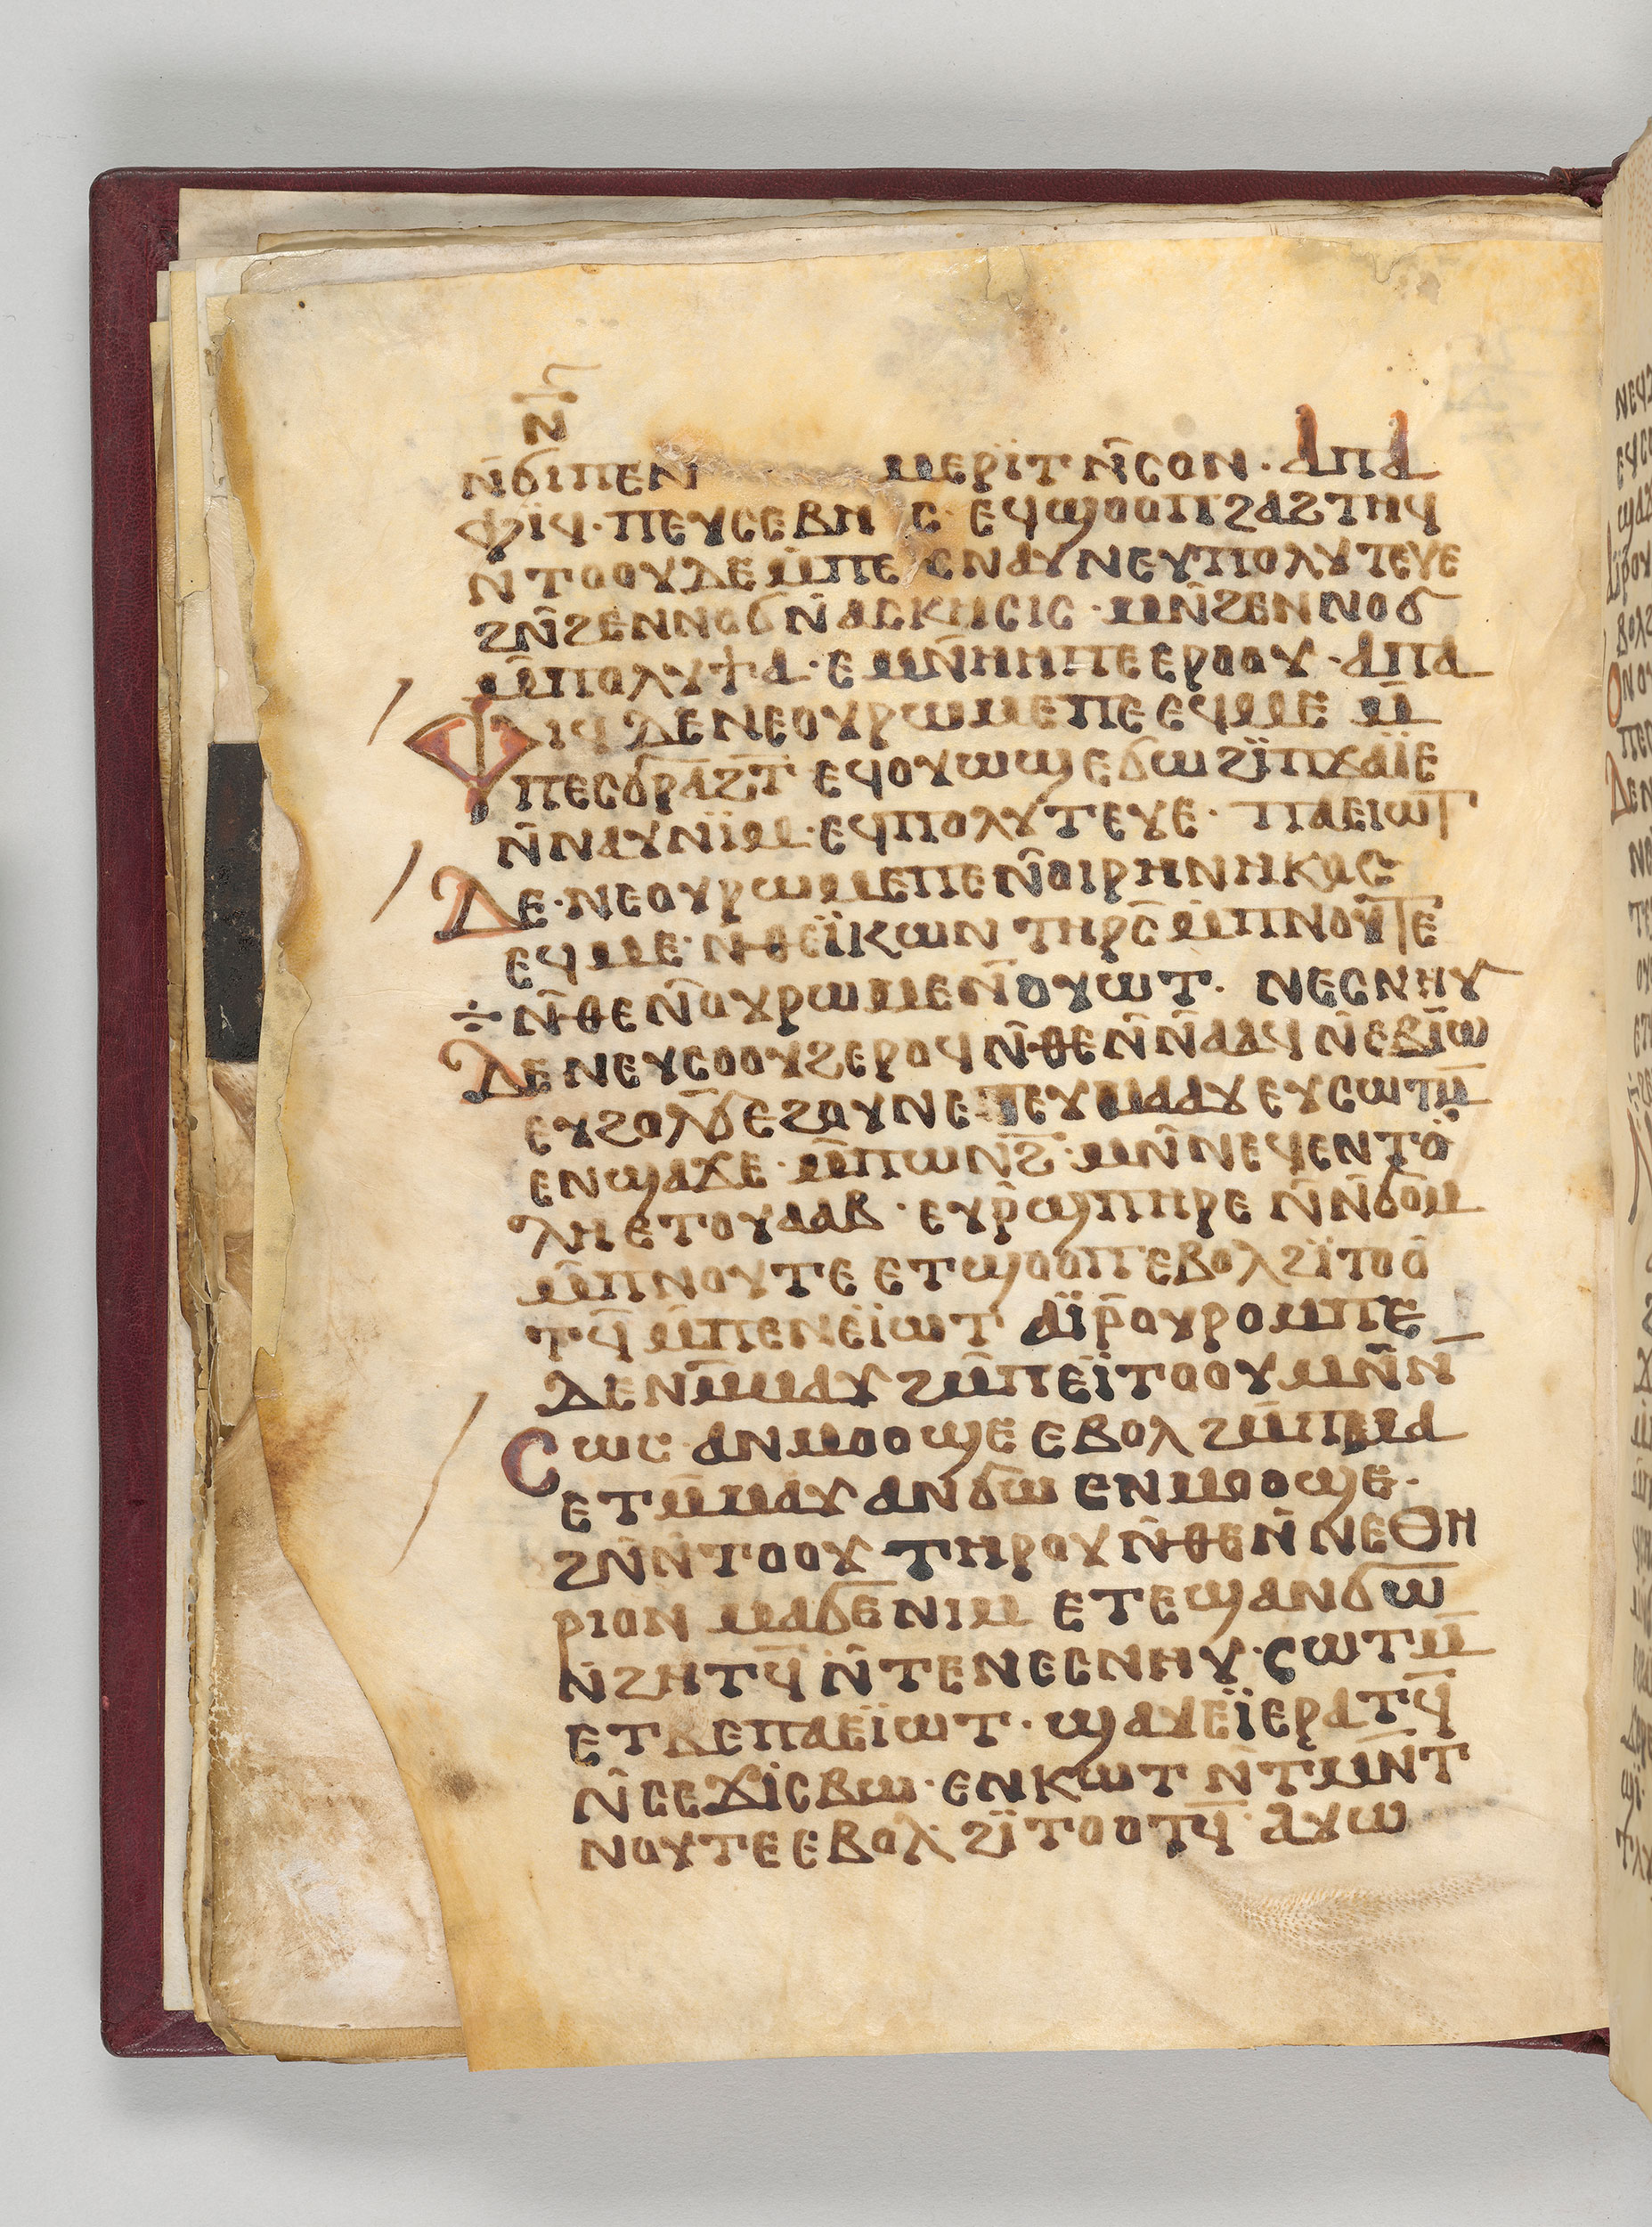 ⲛ
ⲛ̄ϭⲓⲡⲉⲛ ⲙⲉⲣⲓ̈ⲧ ⲛ̄ⲥⲟⲛ · ⲁⲡⲁ
ⲫⲓ̈ϥ · ⲡⲉⲩⲥⲉⲃⲏⲥ · ⲉϥϣⲟⲟⲡ ϩⲁϩⲧⲏϥ
ⲛⲧⲟⲟⲩⲇⲉ ⲙ̄ⲡⲉⲥⲛⲁⲩ ⲛⲉⲩⲡⲟⲗⲩⲧⲉⲩⲉ
ϩⲛ̄ϩⲉⲛⲛⲟϭ ⲛ̄ⲁⲥⲕⲏⲥⲓⲥ · ⲙⲛ̄ϩⲉⲛⲛⲟϭ
ⲙ̄ⲡⲟⲗⲩϯⲁ · ⲉⲙⲛ̄ⲏⲡⲉ ⲉⲣⲟⲟⲩ · ⲁⲡⲁ
ⲫⲓϥ ⲇⲉ ⲛⲉⲟⲩⲣⲱⲙⲉⲡⲉ ⲉϥⲙⲉ ⲙ̄
ⲡⲉⲥϭⲣⲁϩⲧ̄ ⲉϥⲟⲩⲱϣ ⲉϭⲱ ϩⲓ̈ⲡϫⲁⲓ̈ⲉ
ⲛ̄ⲛⲁⲩ ⲛⲓ̈ⲙ · ⲉϥⲡⲟⲗⲩⲧⲉⲩⲉ · ⲡⲁⲉⲓⲱⲧ
ⲇⲉ · ⲛⲉⲟⲩⲣⲱⲙⲉⲡⲉ ⲛ̄ⲟⲓⲣⲏⲛⲏⲕⲟⲥ
ⲉϥⲙⲉ · ⲛ̄ⲑⲉⲓ̈ⲕⲱⲛ ⲧⲏⲣⲥ̄ ⲙ̄ⲡⲛⲟⲩⲧⲉ
÷ ⲛ̄ⲑⲉ ⲛ̄ⲟⲩⲣⲱⲙⲉ ⲛ̄ⲟⲩⲱⲧ · ⲛⲉⲥⲛⲏⲩ
ⲇⲉ ⲛⲉⲩⲥⲟⲟⲩϩ ⲉⲣⲟϥ ⲛ̄ⲑⲉ ⲛ̄ⲛ̄ⲁⲁϥ ⲛ̄ⲉⲃⲓ̈ⲱ
ⲉⲩϩⲟⲗϭ̄ ⲉϩⲟⲩⲛ ⲉⲧⲉⲩⲙⲁⲁⲩ ⲉⲩⲥⲱⲧⲙ̄
ⲉⲛϣⲁϫⲉ · ⲙ̄ⲡⲱⲛϩ̄ · ⲙⲛ̄ⲛⲉϥⲉⲛⲧⲟ
ⲗⲏ ⲉⲧⲟⲩⲁⲁⲃ · ⲉⲩⲣ̄ϣⲡⲏⲣⲉ ⲛ̄ⲛ̄ϭⲟⲙ
ⲙ̄ⲡⲛⲟⲩⲧⲉ ⲉⲧϣⲟⲟⲡ ⲉⲃⲟⲗ ϩⲓ̈ⲧⲟⲟ
ⲧϥ̄ ⲙ̄ⲡⲉⲛⲉⲓ̈ⲱⲧ ⲁⲓ̈ⲣ̄ⲟⲩⲣⲟⲙⲡⲉ
ⲇⲉ ⲛⲙ̄ⲙⲁⲩ ϩⲙ̄ⲡⲉⲓ̈ⲧⲟⲟⲩ ⲙⲛ̄ⲛ̄
ⲥⲱⲥ ⲁⲛⲙⲟⲟϣⲉ ⲉⲃⲟⲗ ϩⲙ̄ⲡⲙⲁ
ⲉⲧⲙ̄ⲙⲁⲩ ⲁⲛϭⲱ ⲉⲛⲙⲟⲟϣⲉ ·
ϩⲛ̄ⲛ̄ⲧⲟⲟⲩ ⲧⲏⲣⲟⲩ ⲛ̄ⲑⲉ ⲛ̄ⲛⲉⲑⲏ
ⲣⲓⲟⲛ ⲙⲁϭⲉ ⲛⲓⲙ ⲉⲧⲉϣⲁⲛϭⲱ̄
ⲛ̄ϩⲏⲧϥ̄ ⲛ̄ⲧⲉⲛⲉⲥⲛⲏⲩ · ⲥⲱⲧⲙ̄
ⲉⲧⲃⲉⲡⲁⲉⲓ̈ⲱⲧ · ϣⲁⲩⲉⲓ̈ ⲉⲣⲁⲧϥ̄
ⲛ̄ⲥⲉϫⲓⲥⲃⲱ · ⲉⲛⲕⲱⲧ ⲛ̄ⲧⲙⲛ̄ⲧ
ⲛⲟⲩⲧⲉ ⲉⲃⲟⲗ ϩⲓ̈ⲧⲟⲟⲧϥ̄ · ⲁⲩⲱ